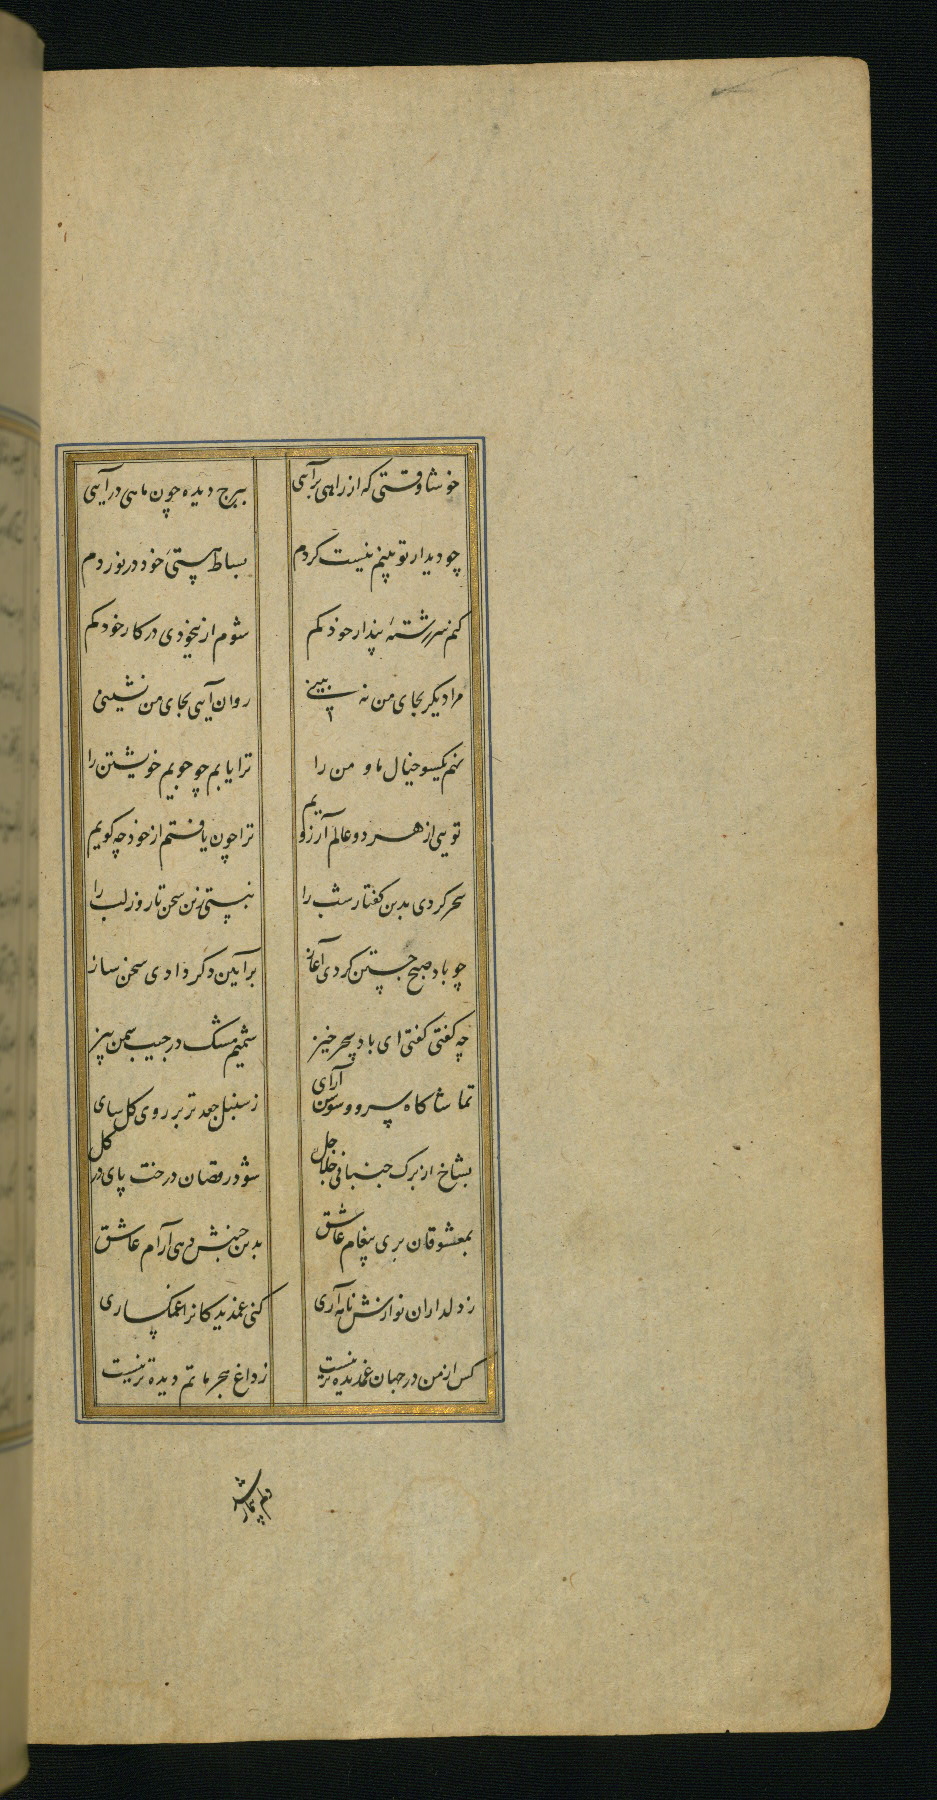 خوشا وقتی که از راهی برآیی ببرج دیده چون ماهی درآیی
چو دیدار تو بینم نیست کردم بساط هستیٔ خود در نوردم
کنم سررشتهٔ پندار خود کم شوم از بیخودی در کار خود کم
مرا دیکر بجای من نه بینی روان آیی بجای من نشینی
نهم یکسو خیال ما و من را ترا یابم چو جویم خویشتن را
تویی از هر دو عالم آرزویم ترا چون یافتم از خود چه کویم
سحر کردی بدین کفتار شب را نبستی زین سخن تا روز لب را
چو باد صبح جستن کردی آغاز بر آیین دکر دادی سخن ساز
چه کفتی کفتی ای باد سحر خیز شمیم مشک در جیب سمن بیز
تماشاکاه سرو و سوسن آرای ز سنبل جعد تر بر روی کل سای
بشاخ از برک جنبانی جلاجل شود رقصان درخت پای در کل
بمعشوقان بری پیغام عاشق بدین جنبش دهی آرام عاشق
ز دلداران نوازش نامه آری کنی غمدیدکانرا غمکساری
کس از من در جهان غمدیده‌تر نیست ز داغ هجر ماتم دیده تر نیست
دلم بیمار شد